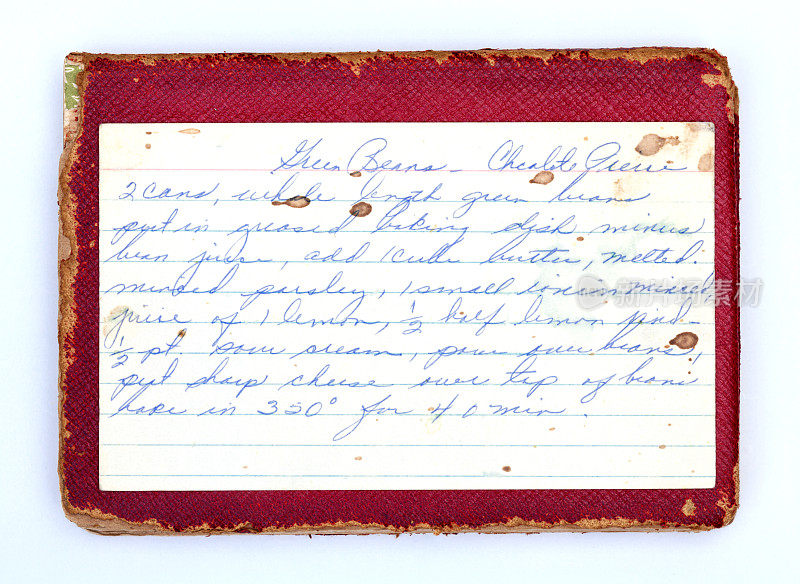 Green Beans - 
2 cans, whole length green beans
put in greased baking dish minus
bean juice, add 1 cube butter, melted.
minced parsley, 1 small onion minced
juice of 1 lemon, 1/2 half lemon rind -
1/2 pt. sour cream, pour over beans,
put sharp cheese over top of beans
bake in 350° for 40 min.
新片场素材 iStock